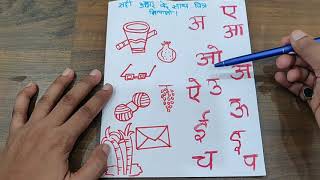 सही अक्षर के साथ चित्र
मिलाओ।
अ ए
आ
ओ अं
ऐ उ
ऊ
ई इ
च प